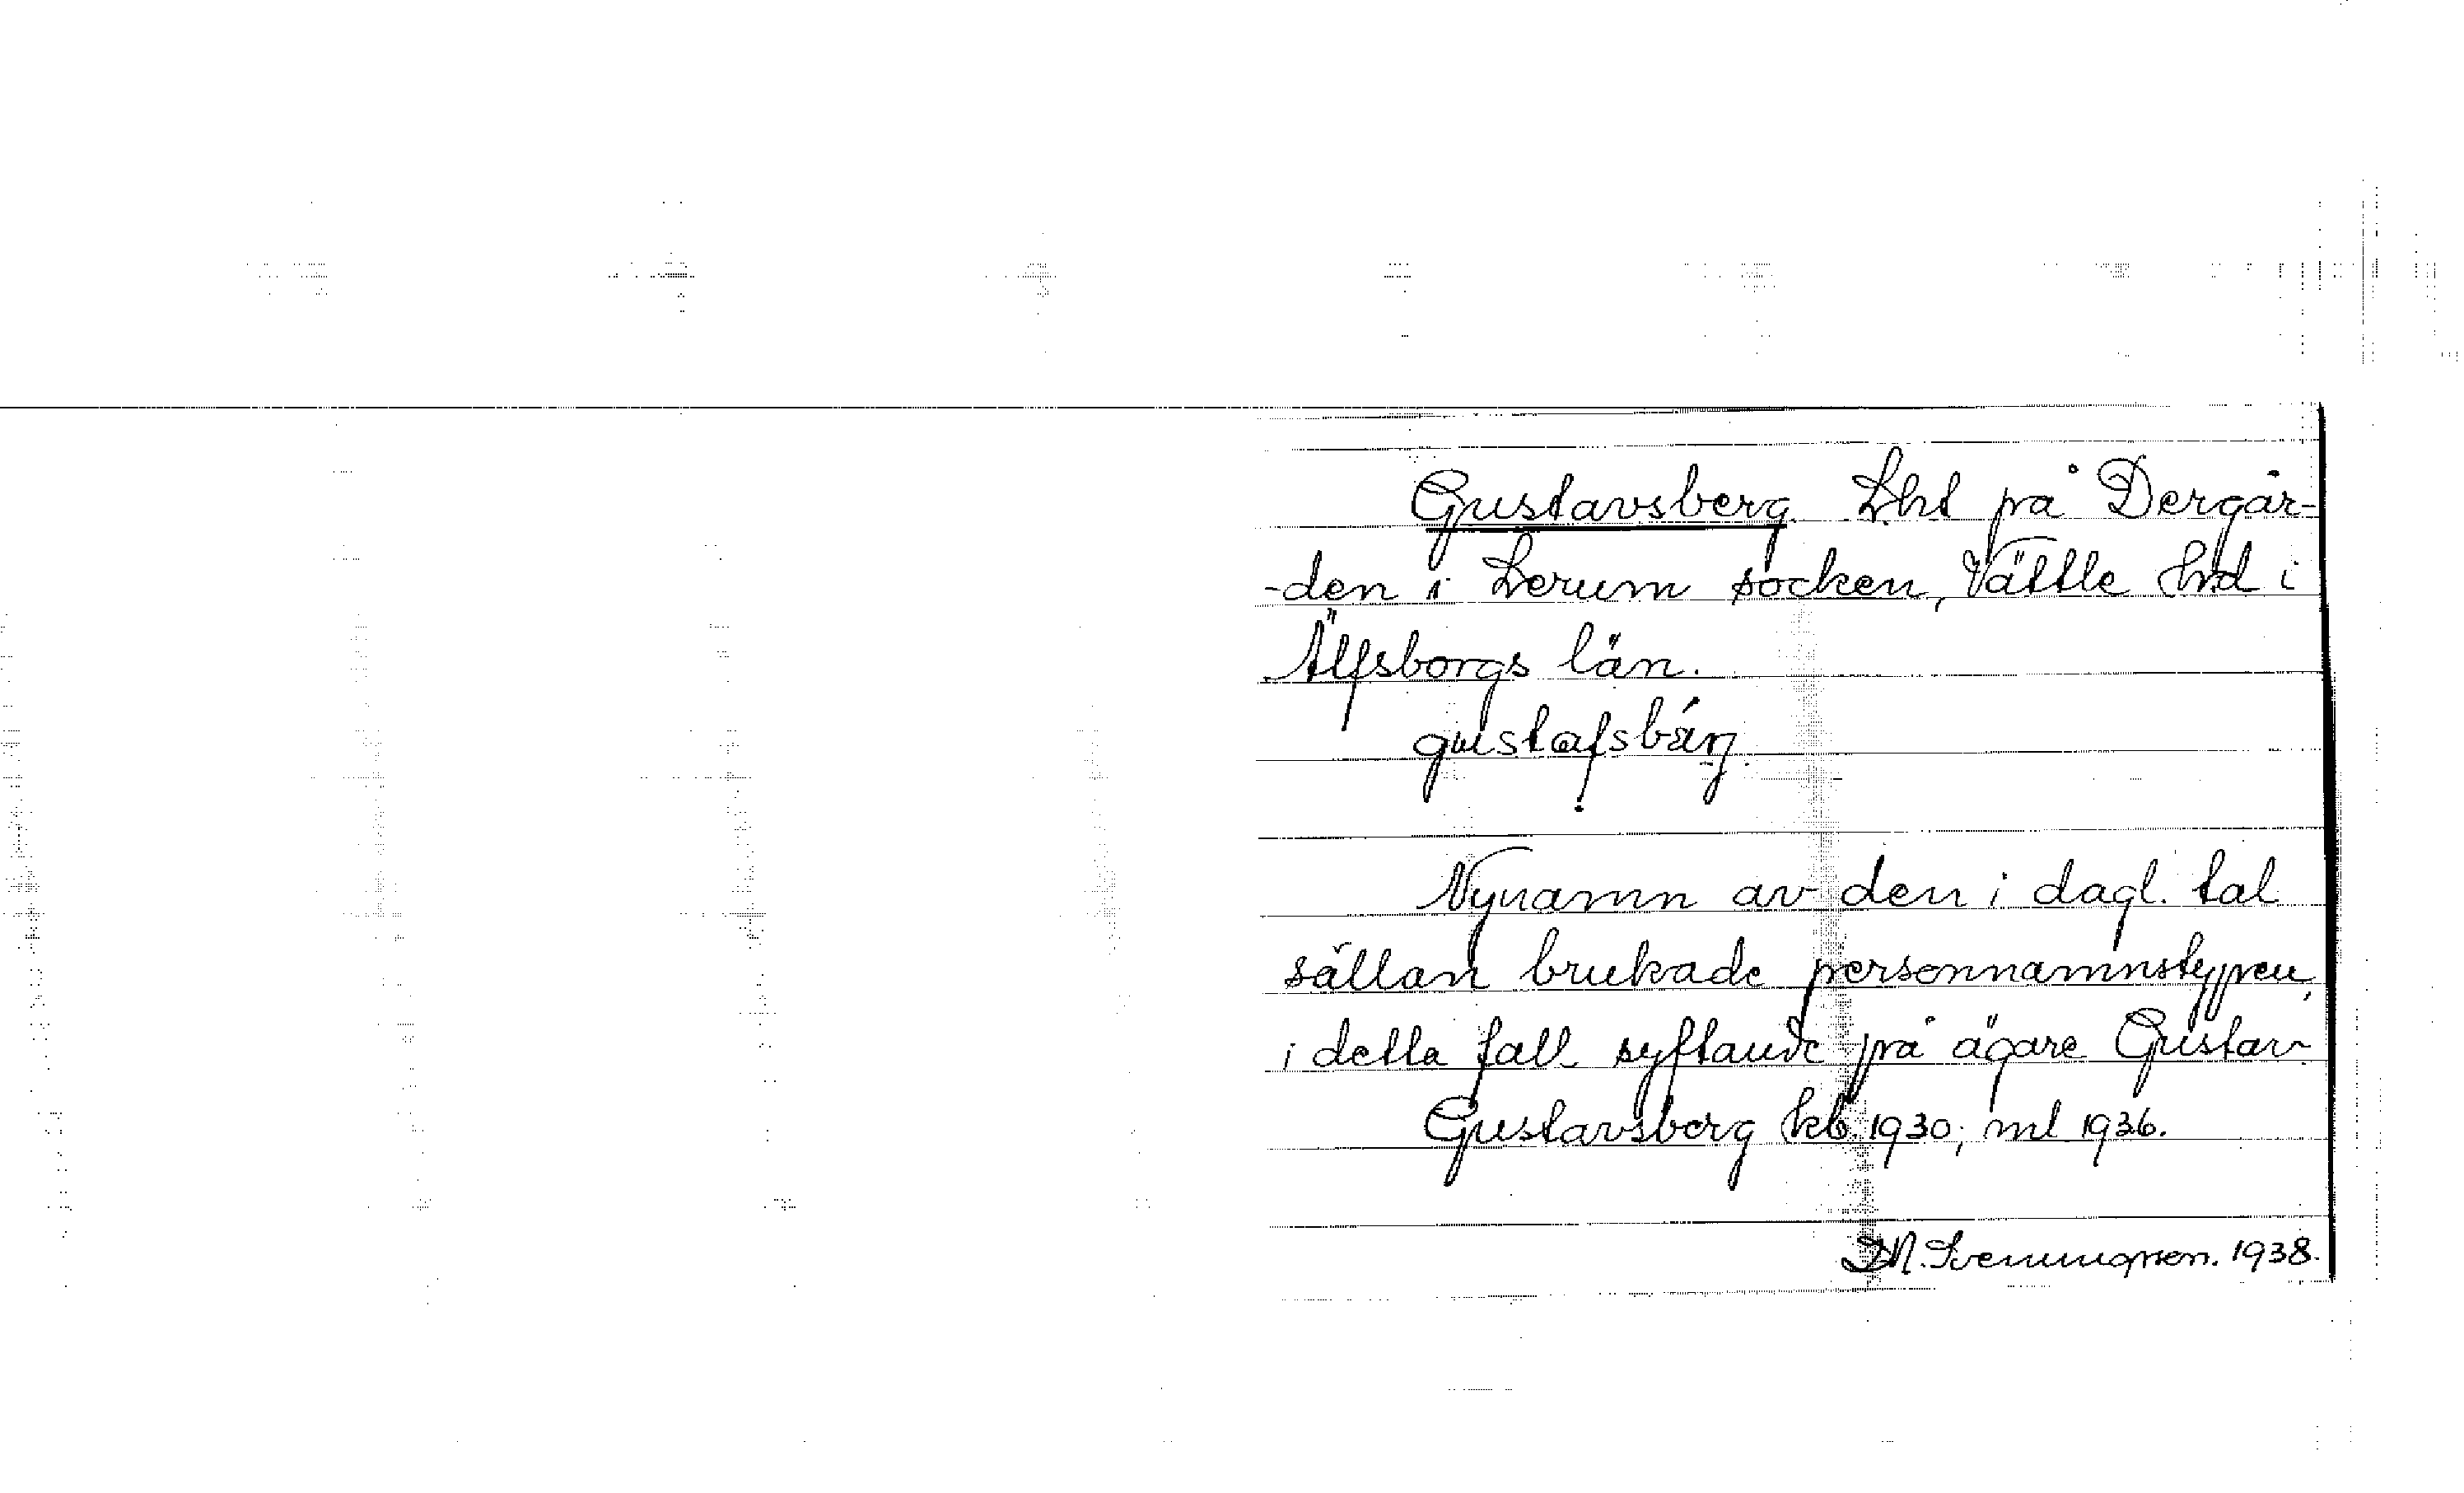 Gustavsberg. Lht på Dergår-
-den i Lerum socken, Vättle hd i
Älfsborgs län.
gustafsbärj
Nynamn av den i dagl. tal
sällan brukade personnamnstypen,
i detta fall syftande på ägare Gustav
Gustavsberg kb. 1930; ml 1936.
1938.